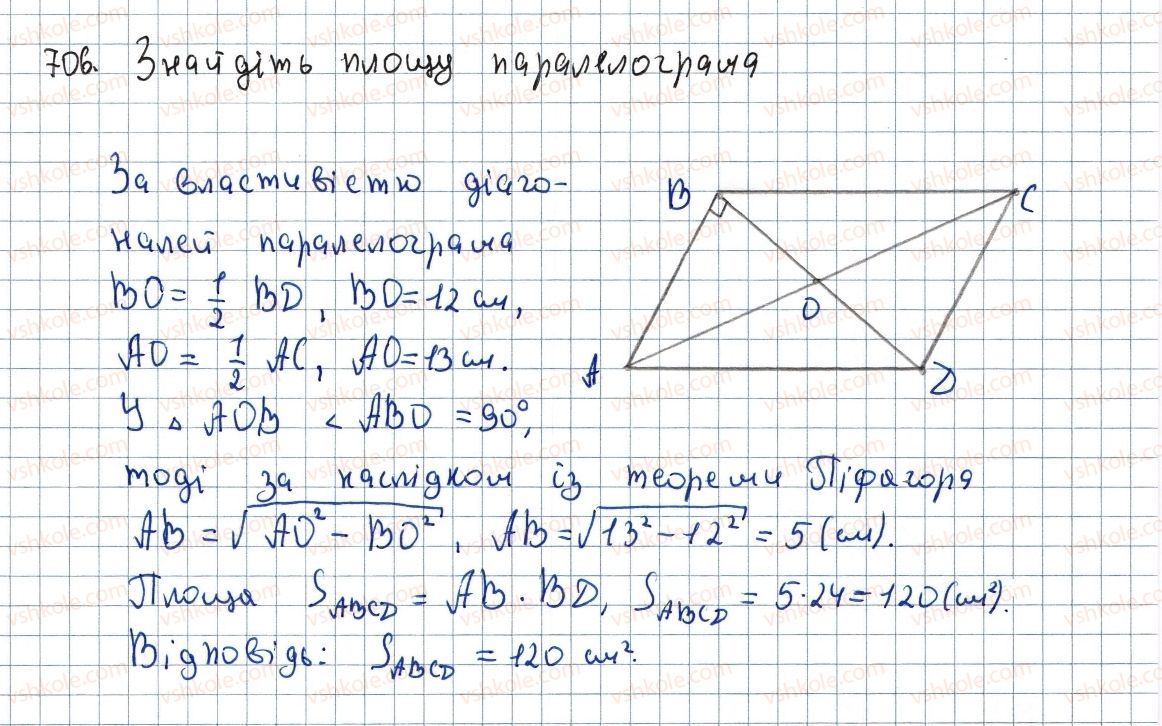 706. Знайдіть площу паралелограма
За властивістю діаго-
налей паралелограма
BO = 1/2 BD, BO = 12 см,
AO = 1/2 AC, AO = 13 см.
У △ AOB < ABO = 90°,
тоді за наслідком із теореми Піфагора
AB = √AO² - BO², AB = √13² - 12² = 5 (см).
Площа S_ABCD = AB · BD, S_ABCD = 5·24 = 120 (см²).
Відповідь: S_ABCD = 120 см².
B
C
O
A
D
vshkole.com